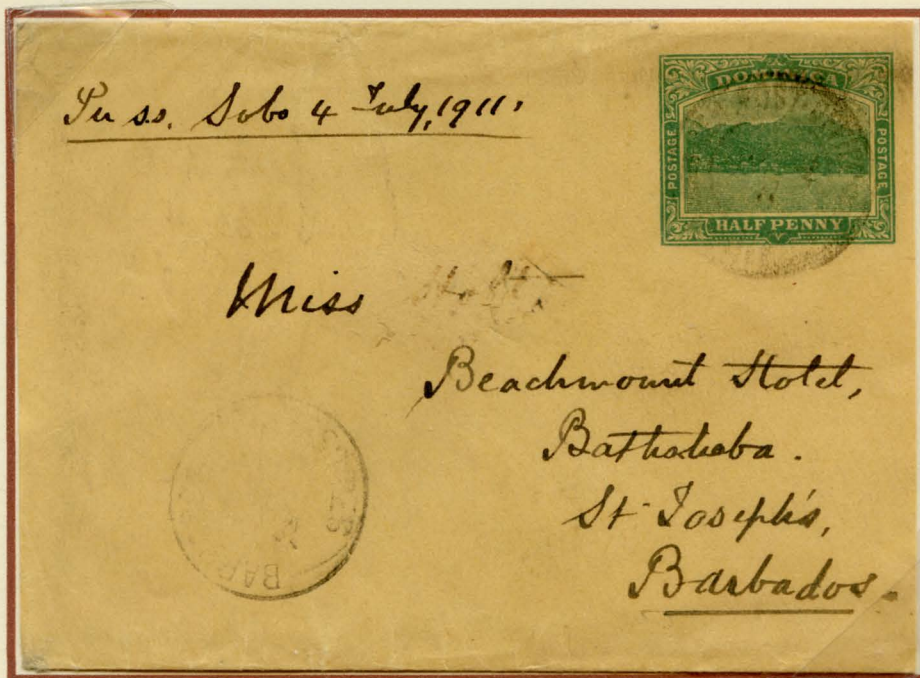 Per ss. Sobo 4 July, 1911.
DOMINICA
POSTAGE
POSTAGE
HALF PENNY
Miss
Beachmount Hotel,
Bathsheba.
St Joseph's,
Barbados.